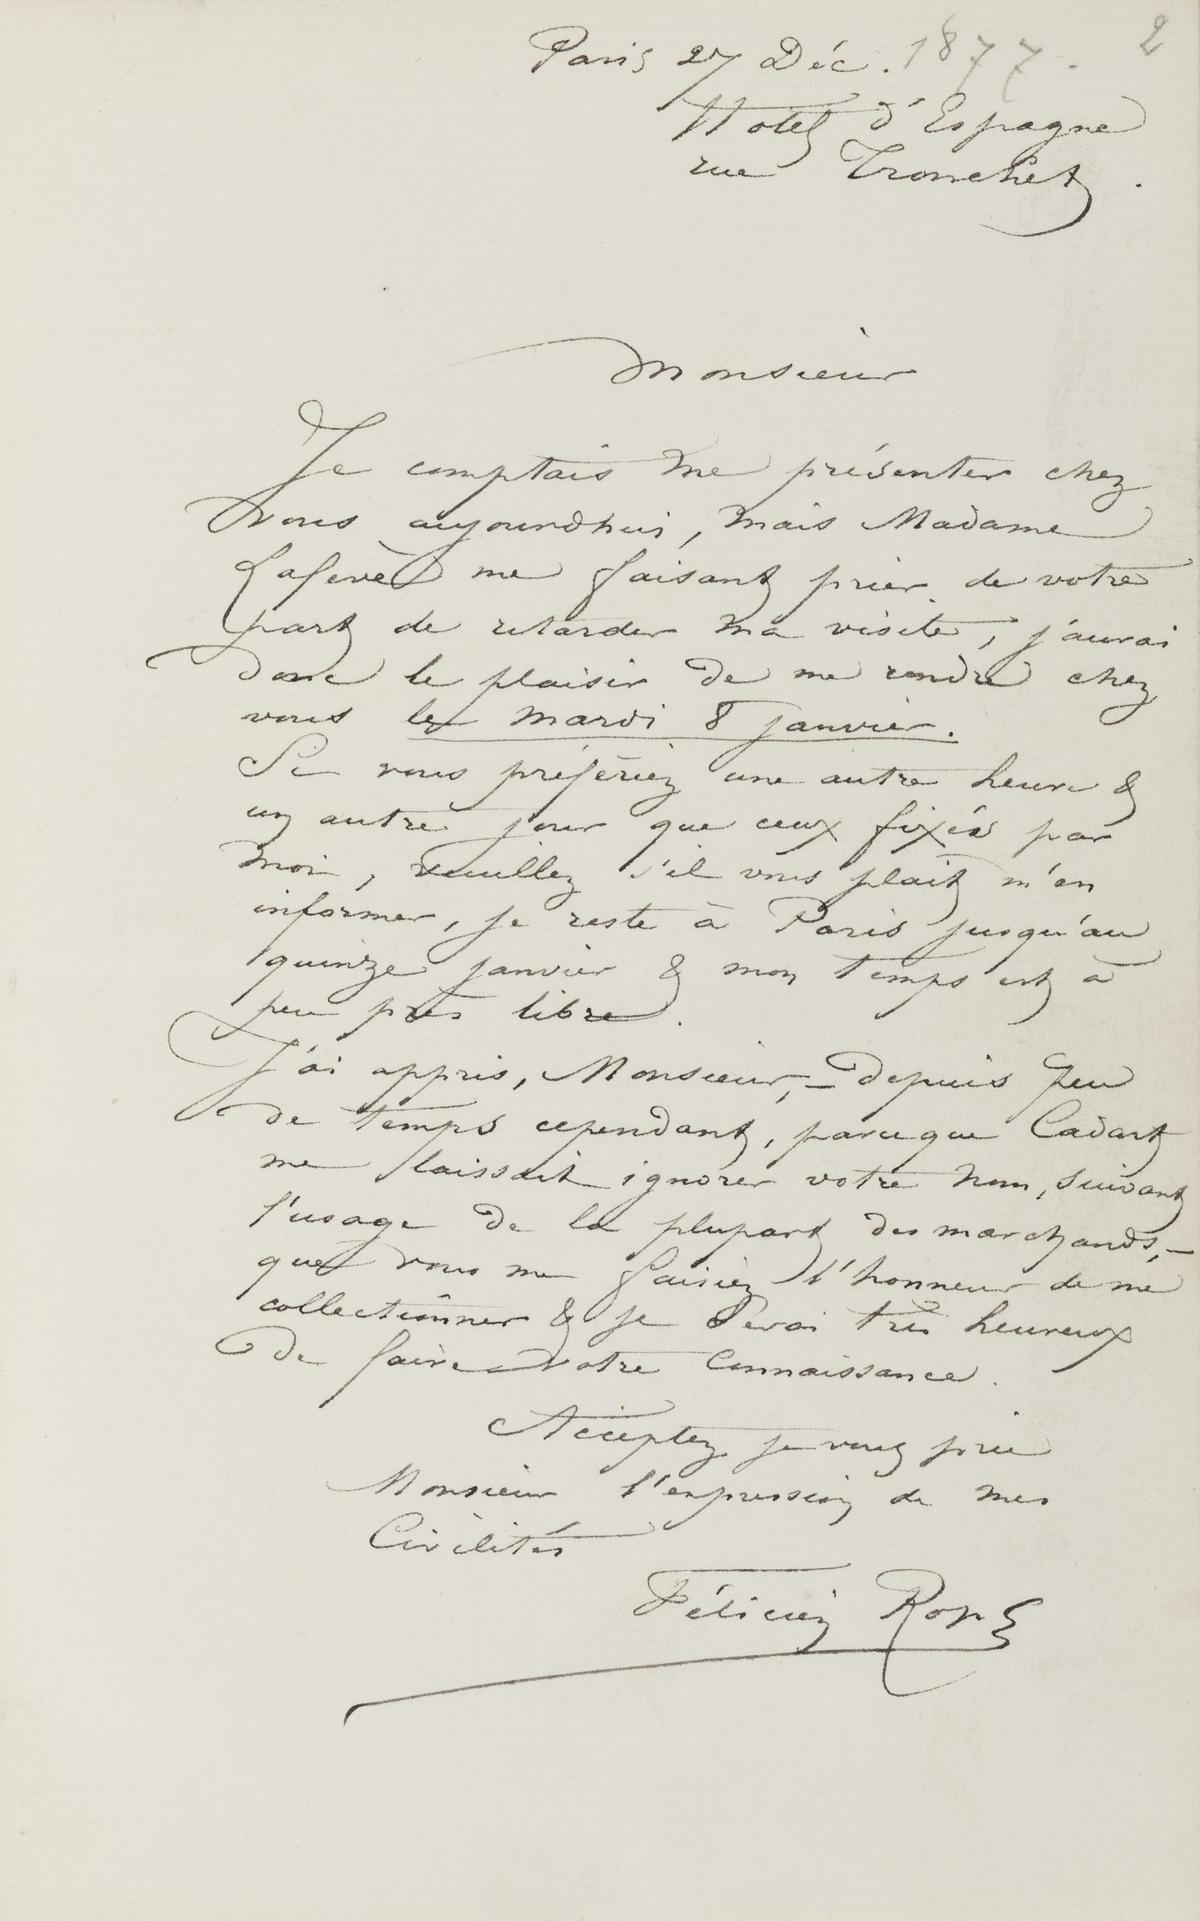 Paris 27 Déc. 1877. 2
Hotel d'Espagne
rue Tronchet.
Monsieur
Je comptais me présenter chez
vous aujourd'hui, mais Madame
me faisant prier de votre
part de retarder ma visite, j'aurai
donc le plaisir de me rendre chez
vous le mardi 8 janvier.
Si vous préfériez une autre heure &
un autre jour que ceux fixés par
moi, veuillez s'il vous plait m'en
informer, je reste à Paris jusqu'au
quinze janvier & mon temps est à
peu près libre.
J'ai appris, Monsieur, – depuis peu
de temps cependant, parceque Cadart
me laissait ignorer votre nom, suivant
l'usage de la plupart des marchands, –
que vous me faisiez l'honneur de me
collectionner & je serai très heureux
de faire votre connaissance.
Acceptez je vous prie
Monsieur l'expression de mes
Civilités
Félicien Rops